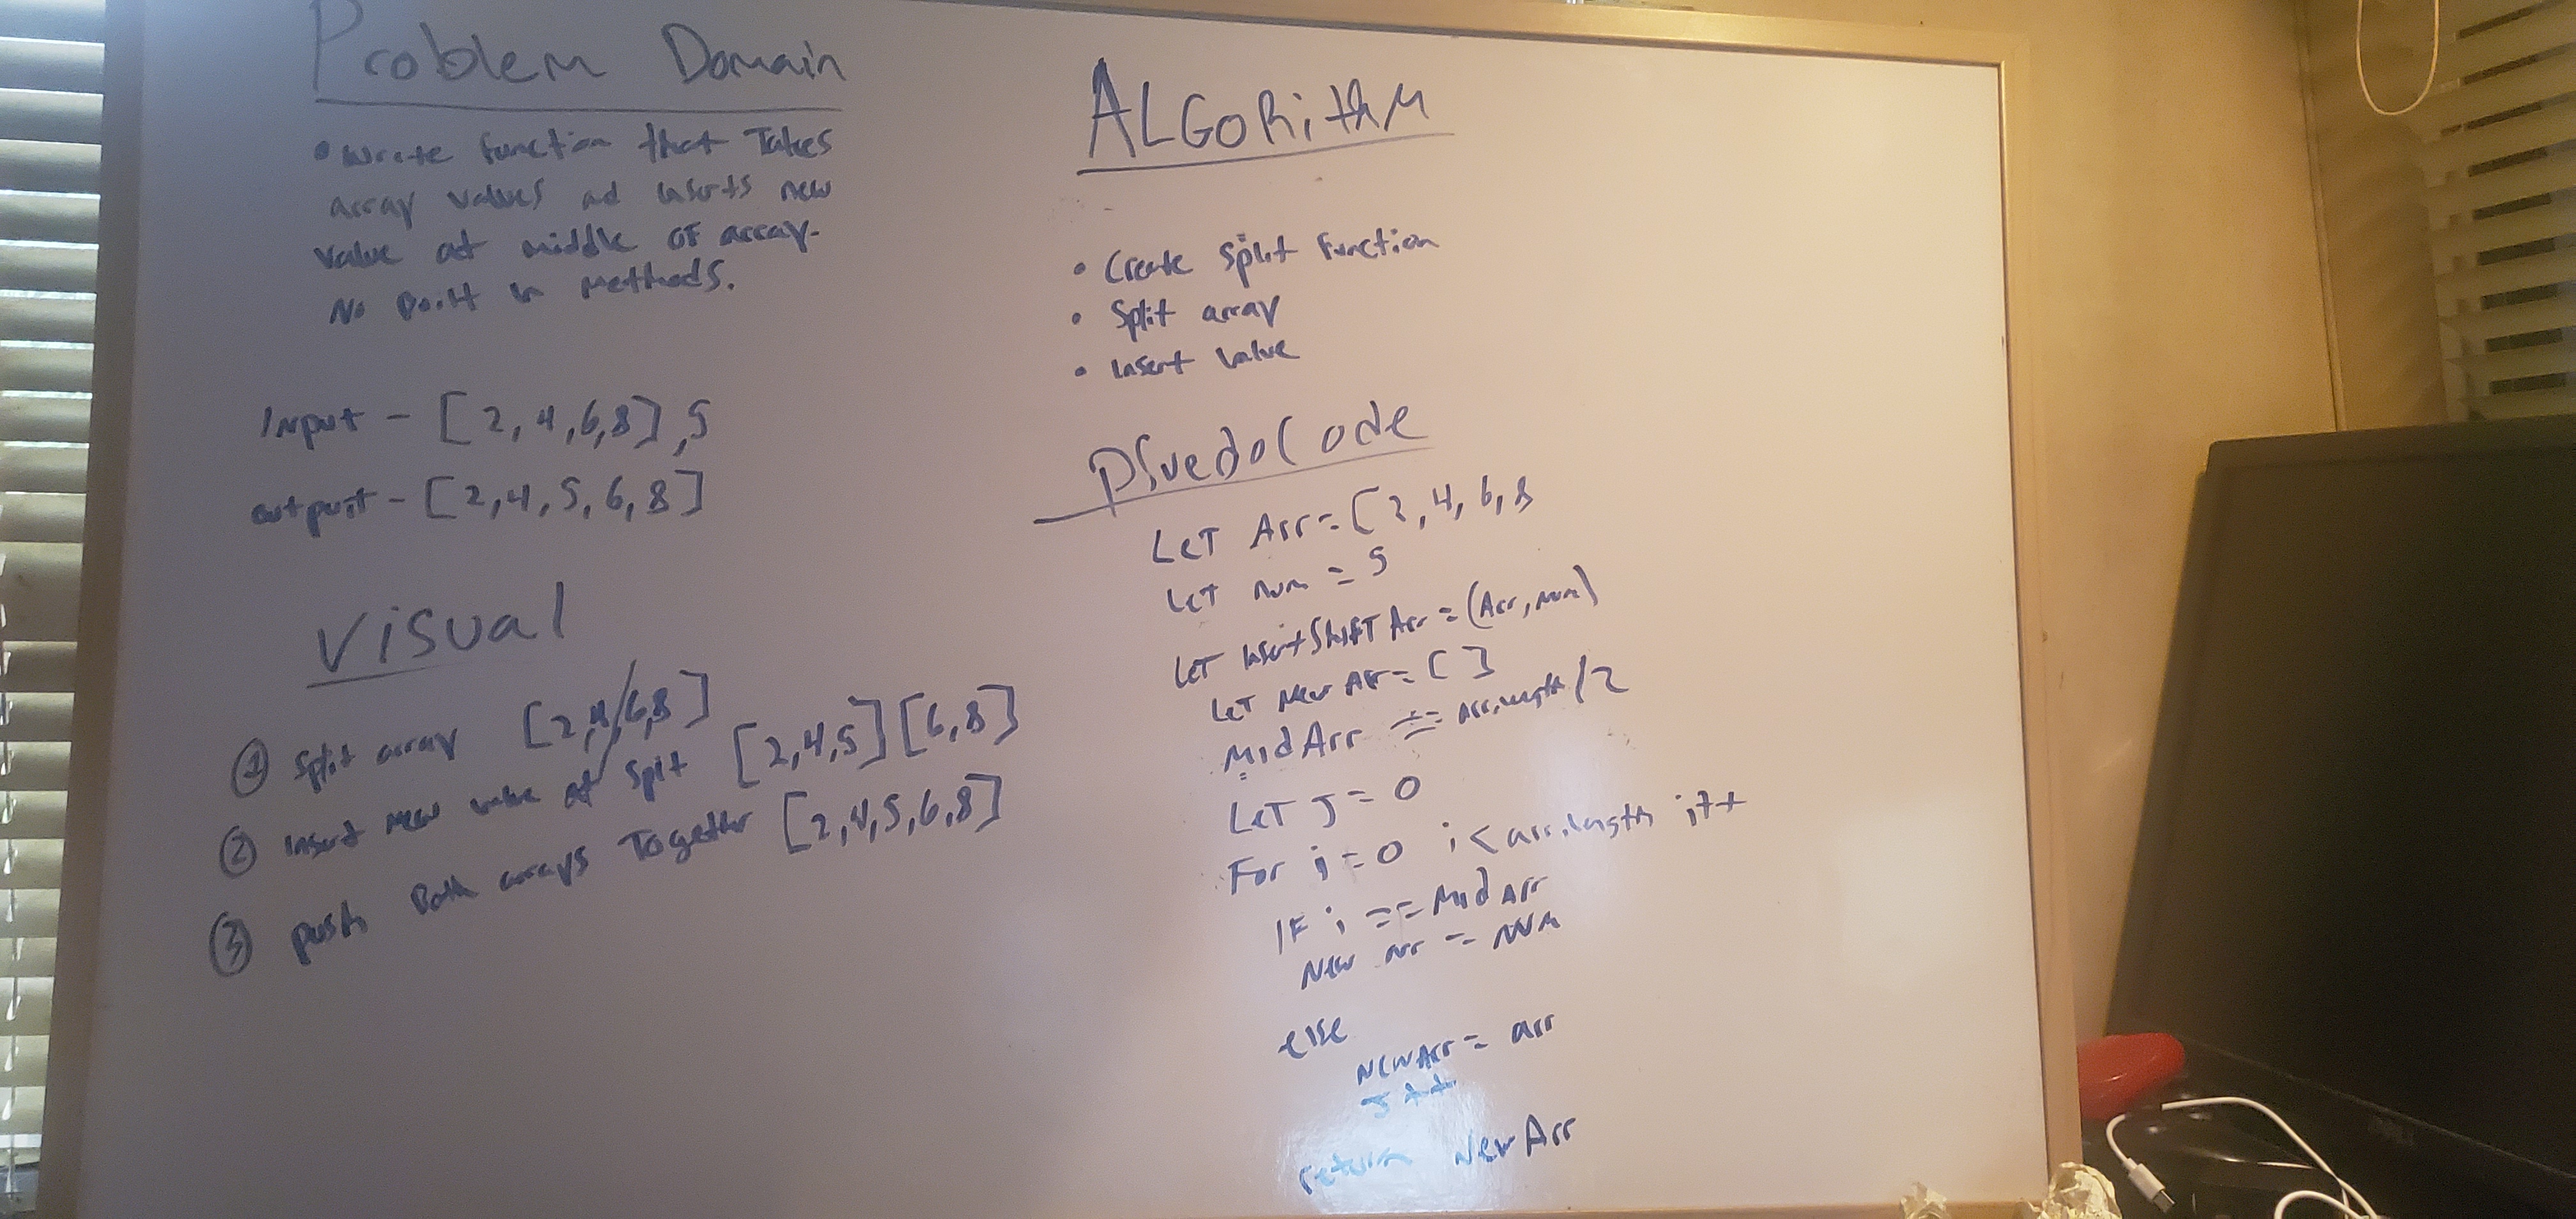 Problem Domain
• Write function that Takes
array values ad inserts new
value at middle of array.
No built in methods.
Input - [2,4,6,8],5
output - [2,4,5,6,8]
Visual
① Split array [2,4/6,8]
② insert new value at split [2,4,5][6,8]
③ push Both arrays Together [2,4,5,6,8]
ALGoRithM
• Create split function
• Split array
• Insert value
PSuedoCode
Let Arr = [2,4,6,8
Let num = 5
Let insertShiftArr = (Arr, num)
Let New Arr = []
MidArr = arr.length/2
Let J = 0
For i = 0 i < arr.length i++
IF i == MidArr
New arr = NUM
else
NewArr = arr
J++
return NewArr